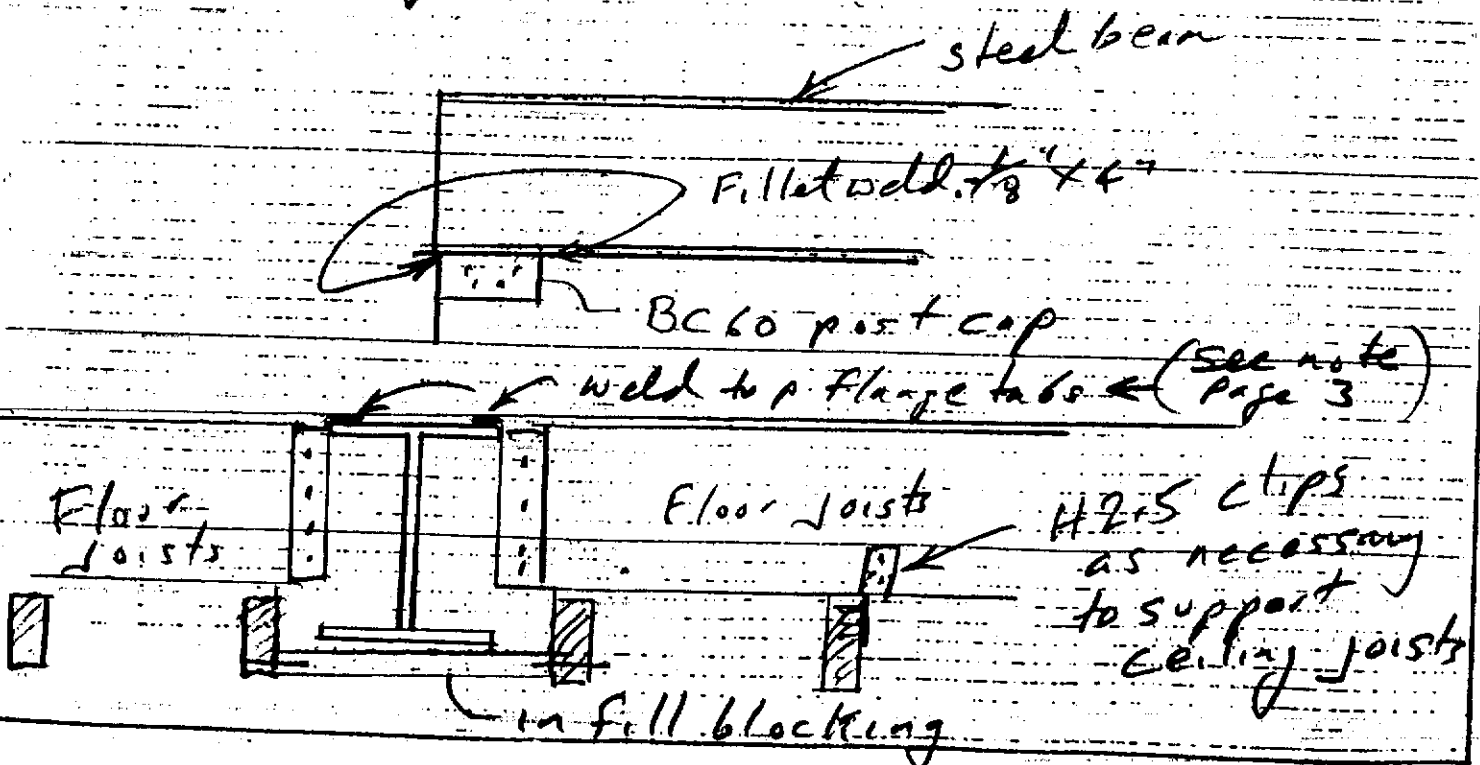 steel beam
Fillet weld 1/8" x 4"
BC60 post cap
weld top flange tabs ← (see note
page 3)
Floor
joists
Floor joists
H2.5 clips
as necessary
to support
ceiling joists
in fill blocking